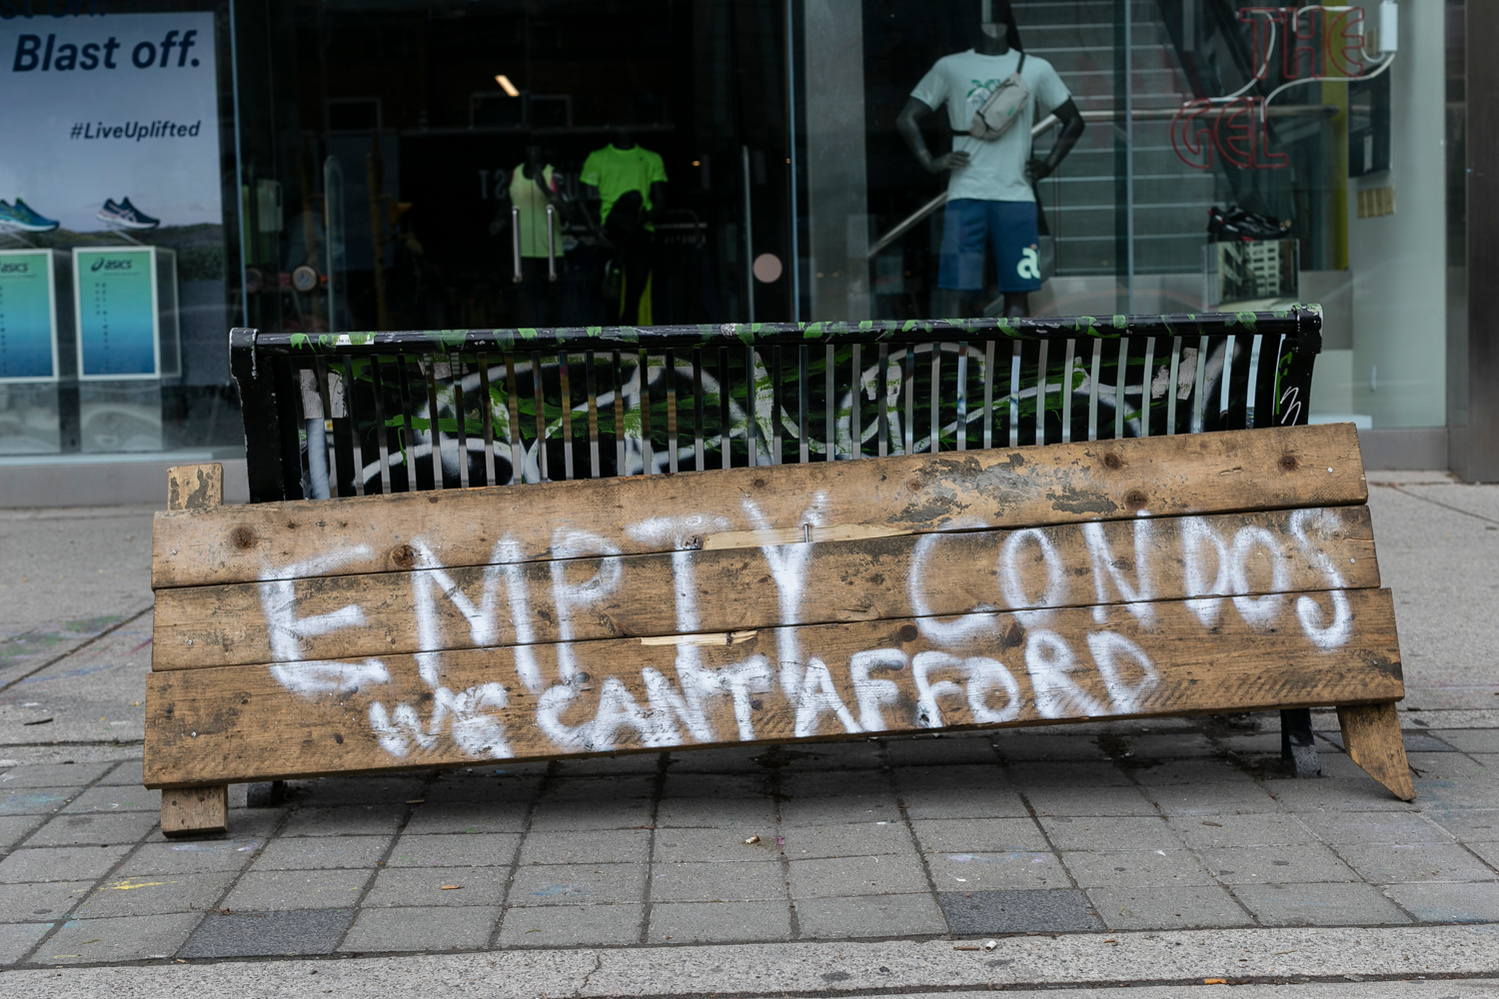 Blast off.
#LiveUplifted
asics
asics
THE
GEL
EMPTY CONDOS
WE CAN'T AFFORD